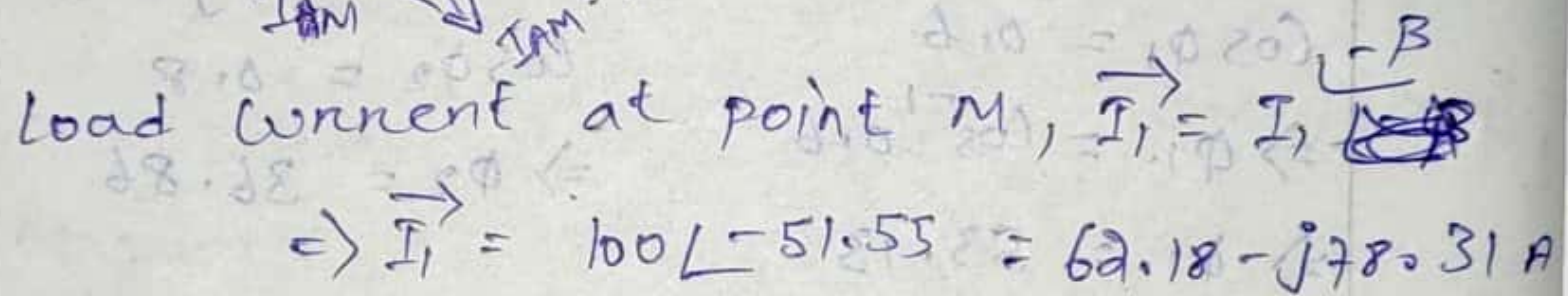 IAM IAM
Load current at point M, I₁ = I₁ ∠-β
=> I₁ = 100∠-51.55 = 62.18-j78.31 A